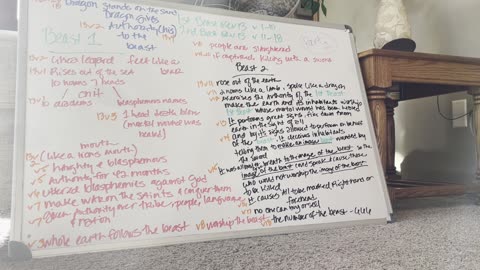 Dragon stands on the sand
Dragon gives
v2 Authority
to the
beast
Beast 1
v2 Like a leopard feet like a
bear
v1 Rises out of the sea
10 horns 7 heads
10 diadems blasphemous names
v3 1 head death blow
(mortal wound was
healed)
mouth
(like a lions mouth)
v5 haughty & blasphemous
v5 authority for 42 months
v6 uttered blasphemies against God
v7 make war on the saints & conquer them
v7 given authority over tribe, people, language
& nation
v whole earth follows the beast
v8 worship the beast
1st Beast Rev 13 v 1-10
2nd Beast Rev 13 v 11-18
v10 people are slaughtered
v10 if captured, killed with a sword
Part 3
Beast 2
v11 rose out of the earth
v11 2 horns like a lamb, spoke like a dragon
v12 exercises the authority of the 1st beast
make the earth and its inhabitants worship
1st beast whose mortal wound had been healed
v13 It performs great signs, fire down from
earth in the sight of all
v14 and by its signs allowed to perform on behalf
of the beast, it deceives inhabitants
telling them to make an image wounded by
the sword
v15 It was allowed breath to the image of the beast so the
image of the beast could speak & cause those
who would not worship the image of the beast
to be killed
v16 It causes All to be marked Right hand or
forehead
v17 no one can buy or sell
v18 the number of the beast - 666